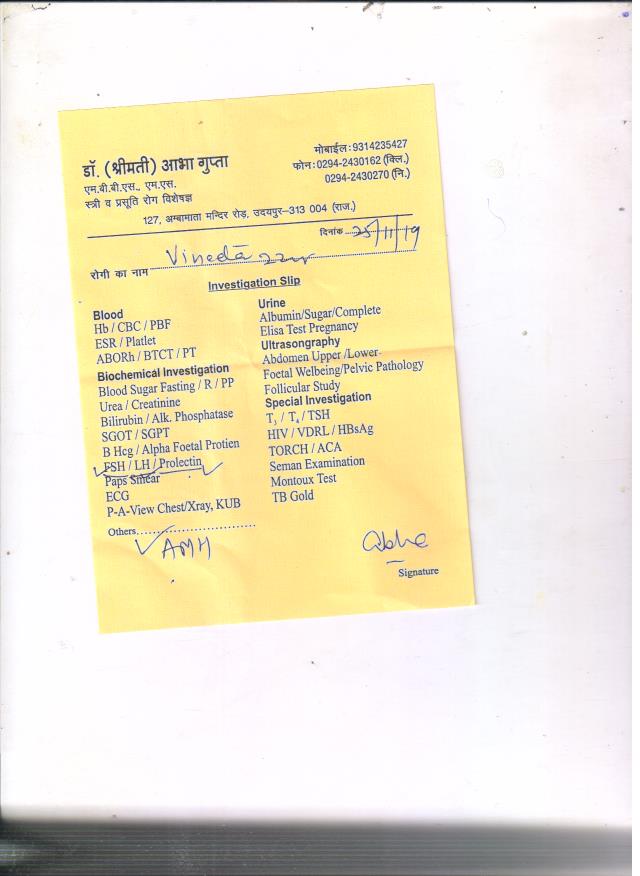 डॉ. (श्रीमती) आभा गुप्ता
एम.बी.बी.एस., एम.एस.
स्त्री व प्रसूति रोग विशेषज्ञ
मोबाईल : 9314235427
फोन : 0294-2430162 (क्लि.)
0294-2430270 (नि.)
127, अम्बामाता मन्दिर रोड़, उदयपुर–313 004 (राज.)
दिनांक 25/11/19
रोगी का नाम Vineeta
Investigation Slip
Blood
Hb / CBC / PBF
ESR / Platlet
ABORh / BTCT / PT
Biochemical Investigation
Blood Sugar Fasting / R / PP
Urea / Creatinine
Bilirubin / Alk. Phosphatase
SGOT / SGPT
B Hcg / Alpha Foetal Protien
FSH / LH / Prolectin
Paps Smear
ECG
P-A-View Chest/Xray, KUB
Others..............................
AMH
Urine
Albumin/Sugar/Complete
Elisa Test Pregnancy
Ultrasongraphy
Abdomen Upper /Lower-
Foetal Welbeing/Pelvic Pathology
Follicular Study
Special Investigation
T₃ / T₄ / TSH
HIV / VDRL / HBsAg
TORCH / ACA
Seman Examination
Montoux Test
TB Gold
Abha
Signature